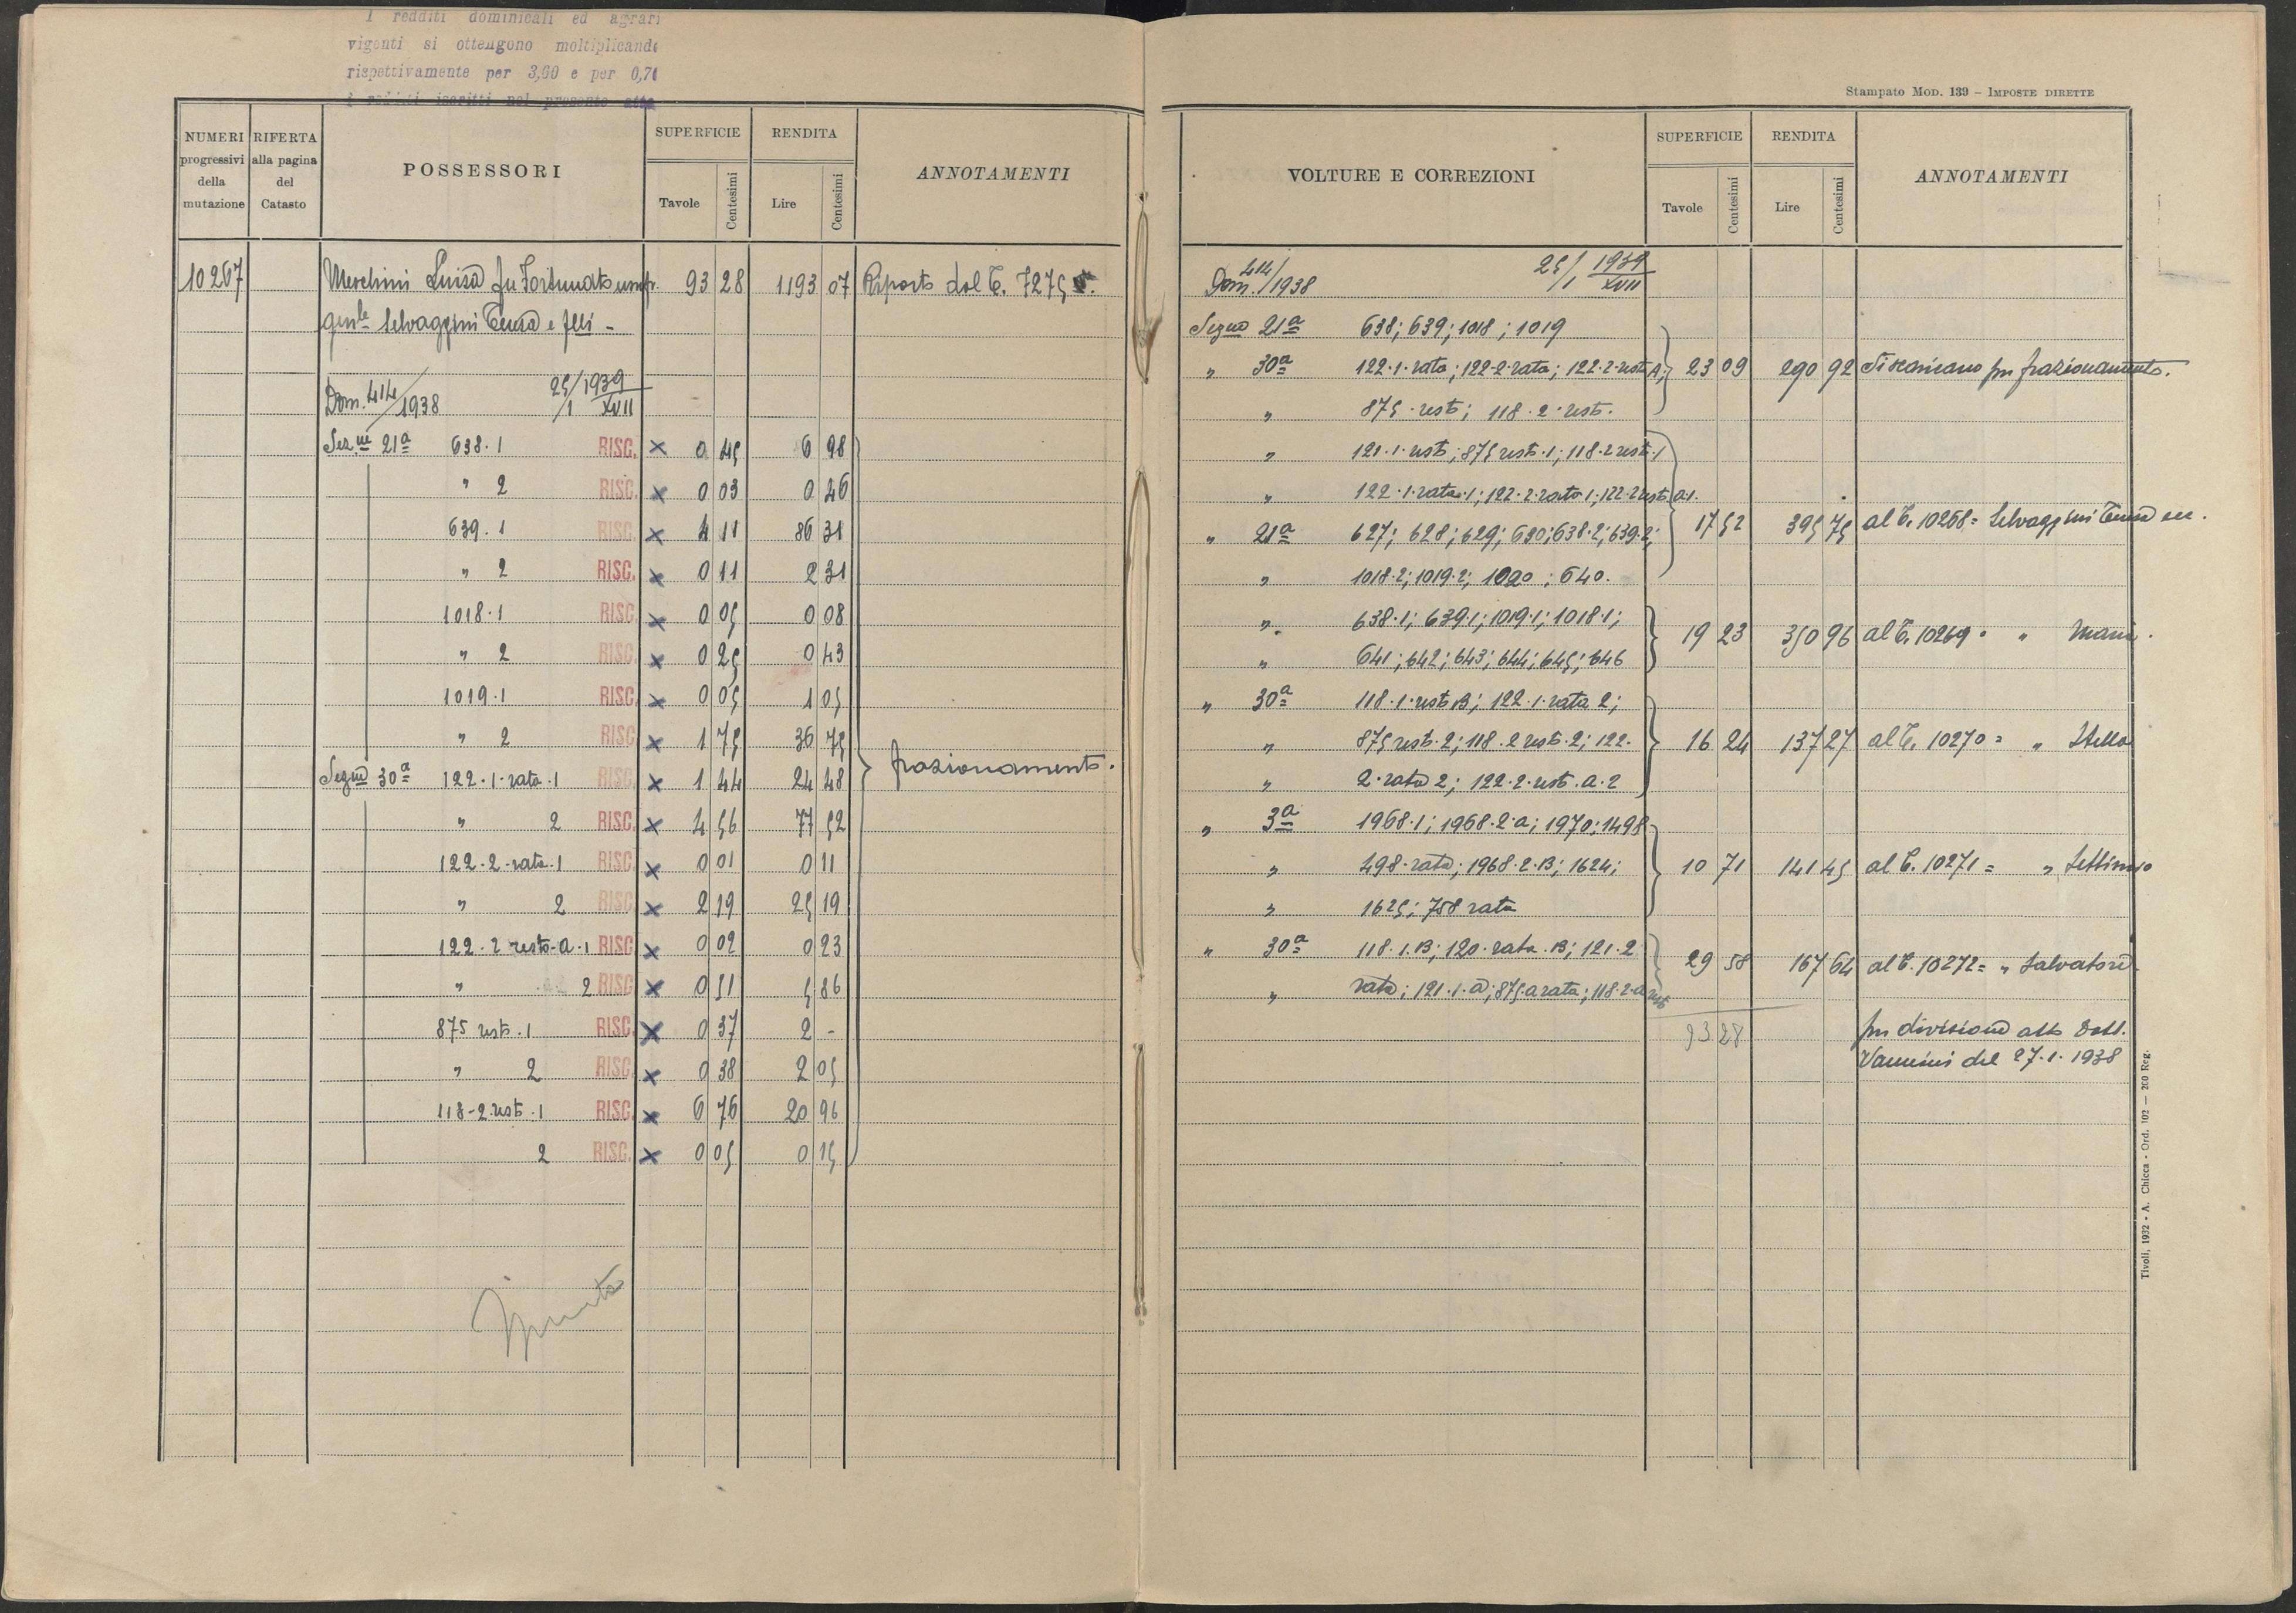 I redditi dominicali ed agrari
vigenti si ottengono moltiplicando
rispettivamente per 3,60 e per 0,70
i redditi iscritti nel presente atto
NUMERI progressivi della mutazione
RIFERTA alla pagina del Catasto
POSSESSORI
SUPERFICIE
Tavole Centesimi
RENDITA
Lire Centesimi
ANNOTAMENTI
10267 Luisa fu Fortunato 93 28 1193 07 Riporto dal C. 7275
Selvaggini e flli -
Dom. 414/1938 25/1 1939 XVII
Sez.ne 21ª 638.1 RISC. × 0 45 6 98
" 2 RISC. × 0 03 0 46
639.1 RISC. × 4 11 86 31
" 2 RISC. × 0 11 2 31
1018.1 RISC. × 0 05 0 08
" 2 RISC. × 0 25 0 43
1019.1 RISC. × 0 05 1 05
" 2 RISC. × 1 75 36 75
30ª 122.1.rata.1 RISC. × 1 44 24 48 frazionamento.
" 2 RISC. × 4 56 77 52
122.2.rata.1 RISC. × 0 01 0 11
" 2 RISC. × 2 19 25 19
122.2 resto.a.1 RISC × 0 02 0 23
" 2 RISC × 0 51 5 86
875 resto.1 RISC. × 0 37 2 -
" 2 RISC. × 0 38 2 05
118-2.resto.1 RISC. × 6 76 20 96
2 RISC. × 0 05 0 15
Stampato MOD. 139 - IMPOSTE DIRETTE
VOLTURE E CORREZIONI
SUPERFICIE
Tavole Centesimi
RENDITA
Lire Centesimi
ANNOTAMENTI
Dom. 414/1938 25/1 1939 XVII
21ª 638; 639; 1018; 1019
" 30ª 122.1.rata; 122.2.rata; 122.2.resto A; 23 09 290 92 Si scaricano per frazionamento.
" 875.resto; 118.2.resto.
" 121.1.resto; 875 resto.1; 118.2 resto.1
" 122.1.rata.1; 122.2.rata 1; 122.2 resto.a.1.
" 21ª 627; 628; 629; 630; 638.2; 639.2; 17 52 395 75 al C. 10268 = Selvaggini
" 1018.2; 1019.2; 1020; 640.
" 638.1; 639.1; 1019.1; 1018.1;
" 641; 642; 643; 644; 645; 646 19 23 350 96 al C. 10269 = " Maria.
" 30ª 118.1.resto B; 122.1.rata 2;
" 875 resto.2; 118.2 resto.2; 122. 16 24 137 27 al C. 10270 = " Stella
" 2.rata 2; 122.2.resto.a.2
" 3ª 1968.1; 1968.2.a; 1970; 1498
" 498.rata; 1968.2.B; 1624; 10 71 141 45 al C. 10271 = " Settimio
" 1625; 758 rata
" 30ª 118.1.B; 120.rata.B; 121.2 29 58 167 64 al C. 10272 = " Salvatore
" rata; 121.1.a; 875.a rata; 118.2.a resto
93 28 per divisione atto Dott.
Vannini del 27.1.1938
Tivoli, 1932 - A. Chicca - Ord. 102 — 200 Reg.